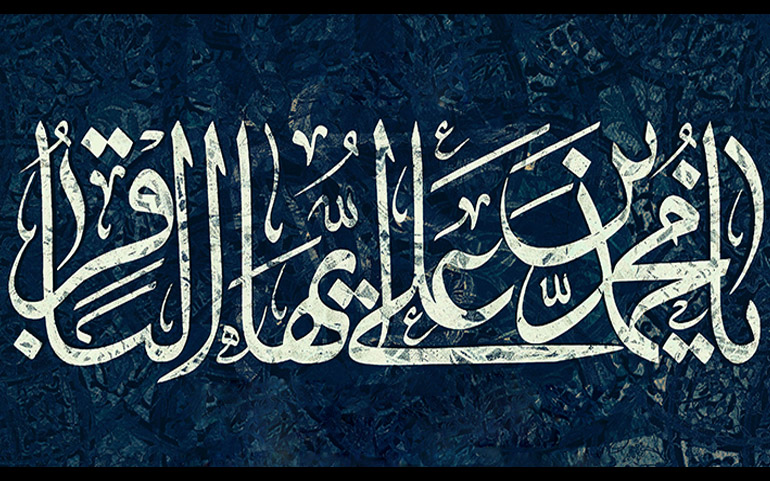 يا محمد بن علي أيها الباقر